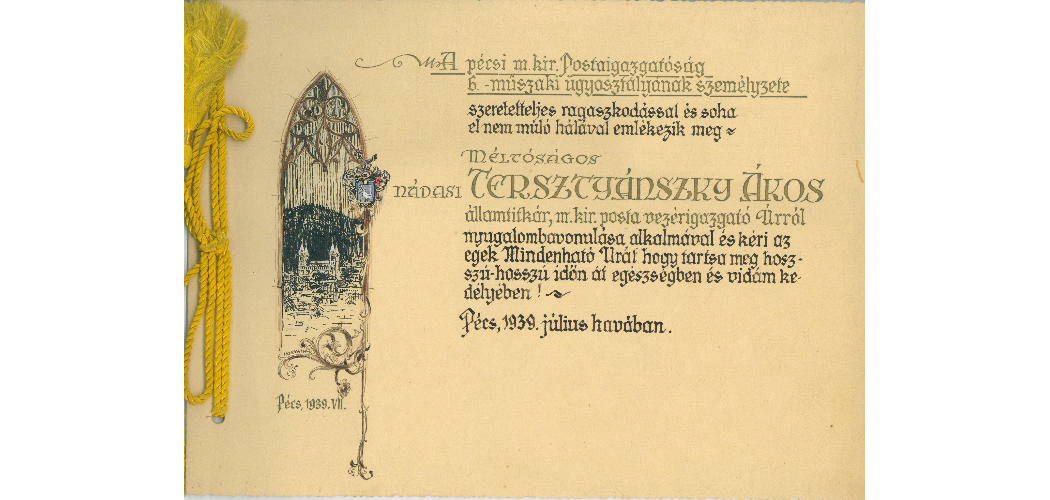 A pécsi m. kir. Postaigazgatóság
6.-műszaki ügyosztályának személyzete
szeretetteljes ragaszkodással és soha
el nem múló hálával emlékezik meg
Méltóságos
nádasi Tersztyánszky Ákos
államtitkár, m. kir. posta vezérigazgató Úrról
nyugalombavonulása alkalmával és kéri az
egek Mindenható Urát hogy tartsa meg hosz-
szú-hosszú időn át egészségben és vidám ke-
délyében!
Pécs, 1939. július havában.
Pécs, 1939. VII.